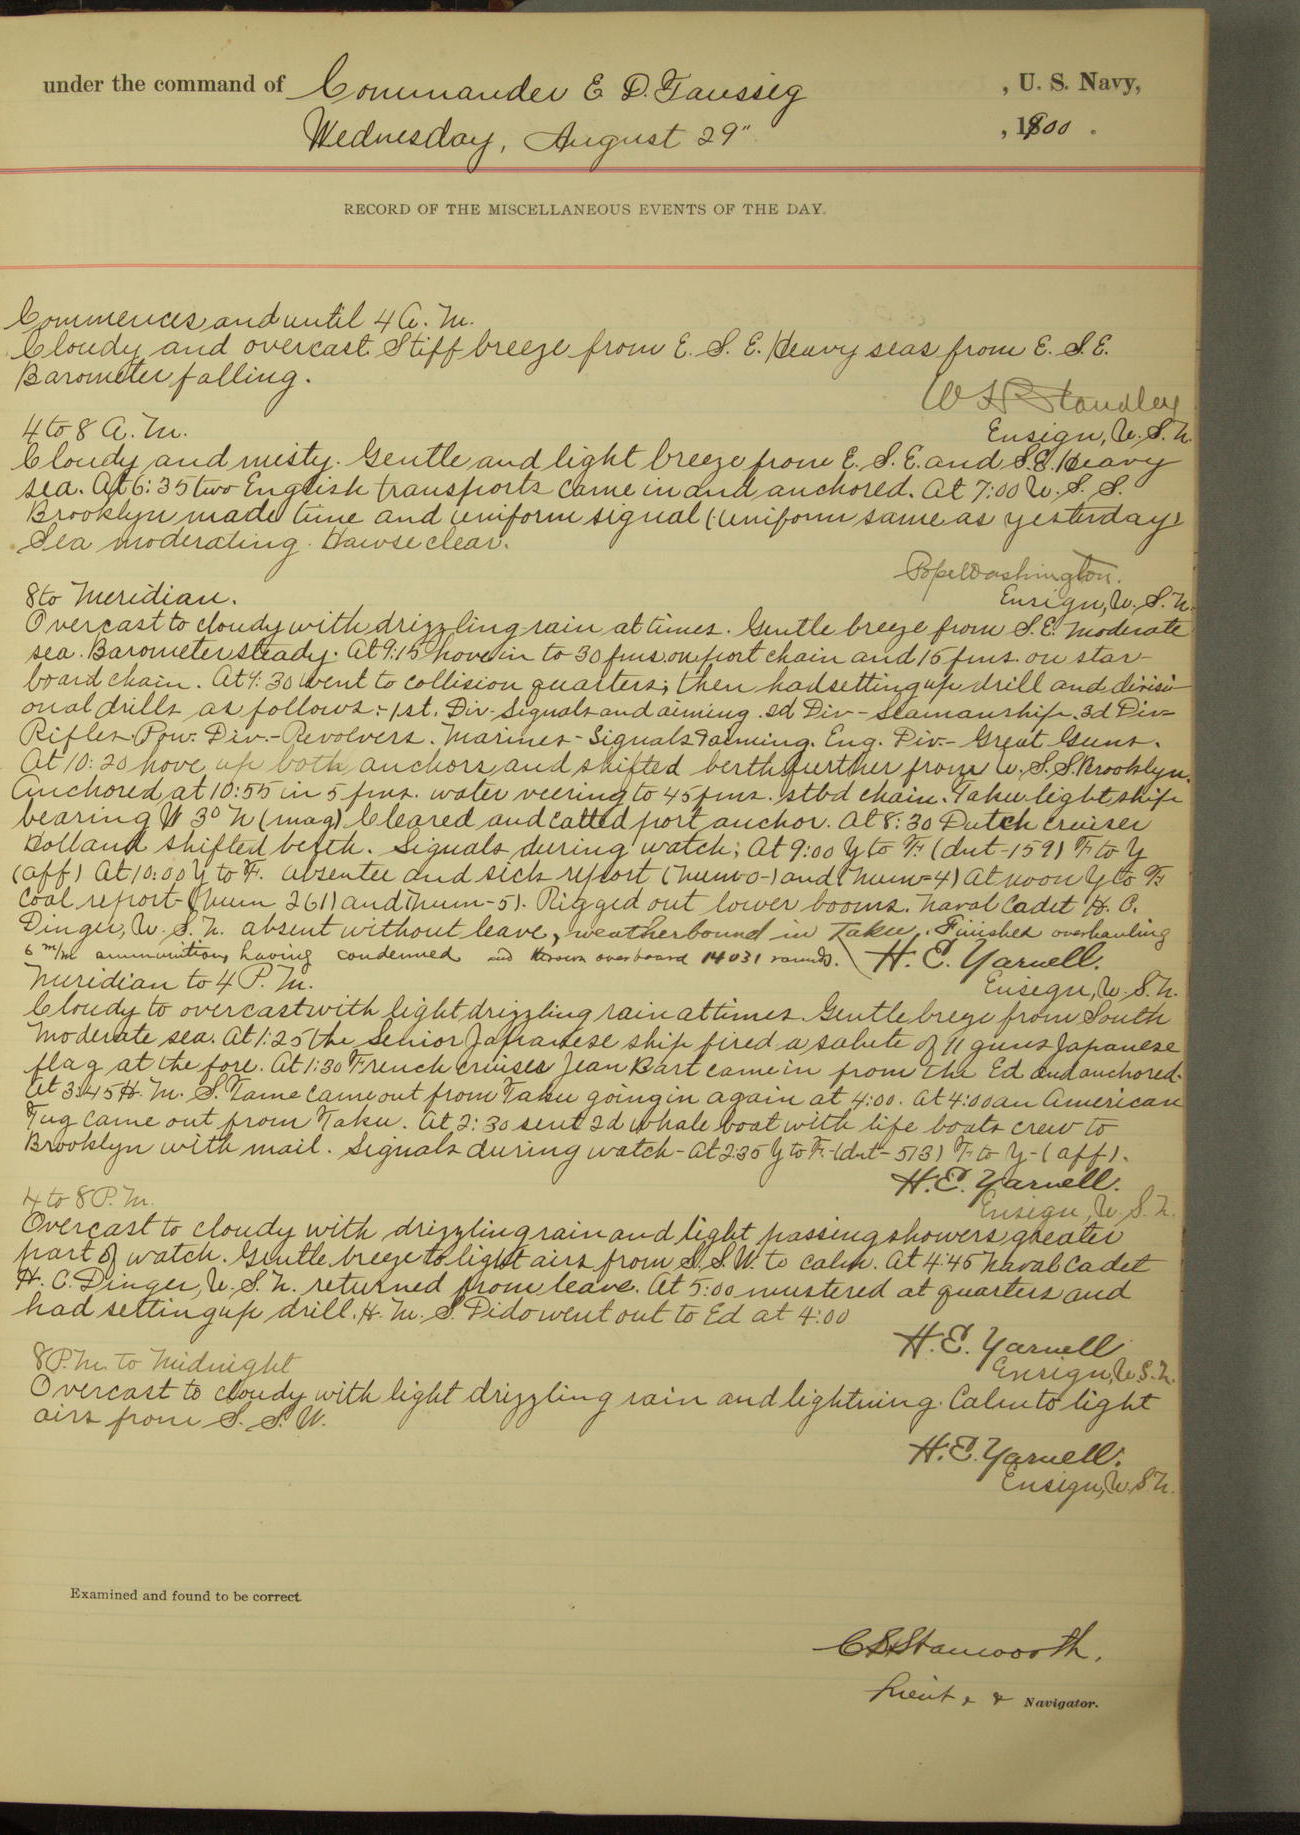 under the command of Commander E. D. Taussig , U. S. Navy,
Wednesday, August 29" , 1900 .
RECORD OF THE MISCELLANEOUS EVENTS OF THE DAY.
Commences and until 4 A. M.
Cloudy and overcast. Stiff breeze from E. S. E. Heavy seas from E. S. E.
Barometer falling.
W H Standley
Ensign, U. S. N.
4 to 8 A. M.
Cloudy and misty. Gentle and light breeze from E. S. E. and S. E. Heavy
sea. At 6:35 two English transports came in and anchored. At 7:00 U. S. S.
Brooklyn made time and uniform signal (uniform same as yesterday)
Sea moderating. Hawse clear.
Pope Washington.
Ensign, U. S. N.
8 to Meridian.
Overcast to cloudy with drizzling rain at times. Gentle breeze from S. E. Moderate
sea. Barometer steady. At 9:15 hove in to 30 fms. on port chain and 15 fms. on star-
board chain. At 9:30 went to collision quarters; then had setting up drill and divisi-
onal drills as follows:- 1st. Div- Signals and aiming. 2d Div- Seamanship. 3d Div-
Rifles. Pow. Div.- Revolvers. Marines- Signals & aiming. Eng. Div.- Great Guns.
At 10:20 hove up both anchors and shifted berth further from U. S. S. Brooklyn.
Anchored at 10:55 in 5 fms. water veering to 45 fms. stbd chain. Taku light ship
bearing W 3° N (mag) Cleared and catted port anchor. At 8:30 Dutch cruiser
Holland shifted berth. Signals during watch; At 9:00 Y to F. (dnt-159) F to Y
(aff) At 10:00 Y to F. absentee and sick report (Num-0-) and (Num-4) At noon Y to F.
Coal report-(Num 261) and Num-5). Rigged out lower booms. Naval Cadet H. C.
Dinger, U. S. N. absent without leave, weatherbound in Taku. Finished overhauling
6 m/m ammunition, having condemned and thrown overboard 14031 rounds. H. E. Yarnell.
Ensign, U. S. N.
Meridian to 4 P. M.
Cloudy to overcast with light drizzling rain at times. Gentle breze from South
Moderate sea. At 1:25 the Senior Japanese ship fired a salute of 11 guns Japanese
flag at the fore. At 1:30 French cruiser Jean Bart came in from the Ed and anchored.
At 3:45 H. M. S. Fame came out from Taku going in again at 4:00. At 4:00 an American
Tug came out from Taku. At 2:30 sent 2d whale boat with life boats crew to
Brooklyn with mail. Signals during watch- At 2:35 Y to F.-(dnt-513) F to Y-(aff).
H. E. Yarnell.
Ensign, U. S. N.
4 to 8 P. M.
Overcast to cloudy with drizzling rain and light passing showers greater
part of watch. Gentle breeze to light airs from S. S. W. to calm. At 4:45 Naval Cadet
H. C. Dinger, U. S. N. returned from leave. At 5:00 mustered at quarters and
had setting up drill. H. M. S. Dido went out to Ed at 4:00
H. E. Yarnell
Ensign, U. S. N.
8 P. M. to Midnight
Overcast to cloudy with light drizzling rain and lightning. Calm to light
airs from S. S. W.
H. E. Yarnell.
Ensign, U. S. N.
Examined and found to be correct.
C S Stanworth.
Lieut, & Navigator.